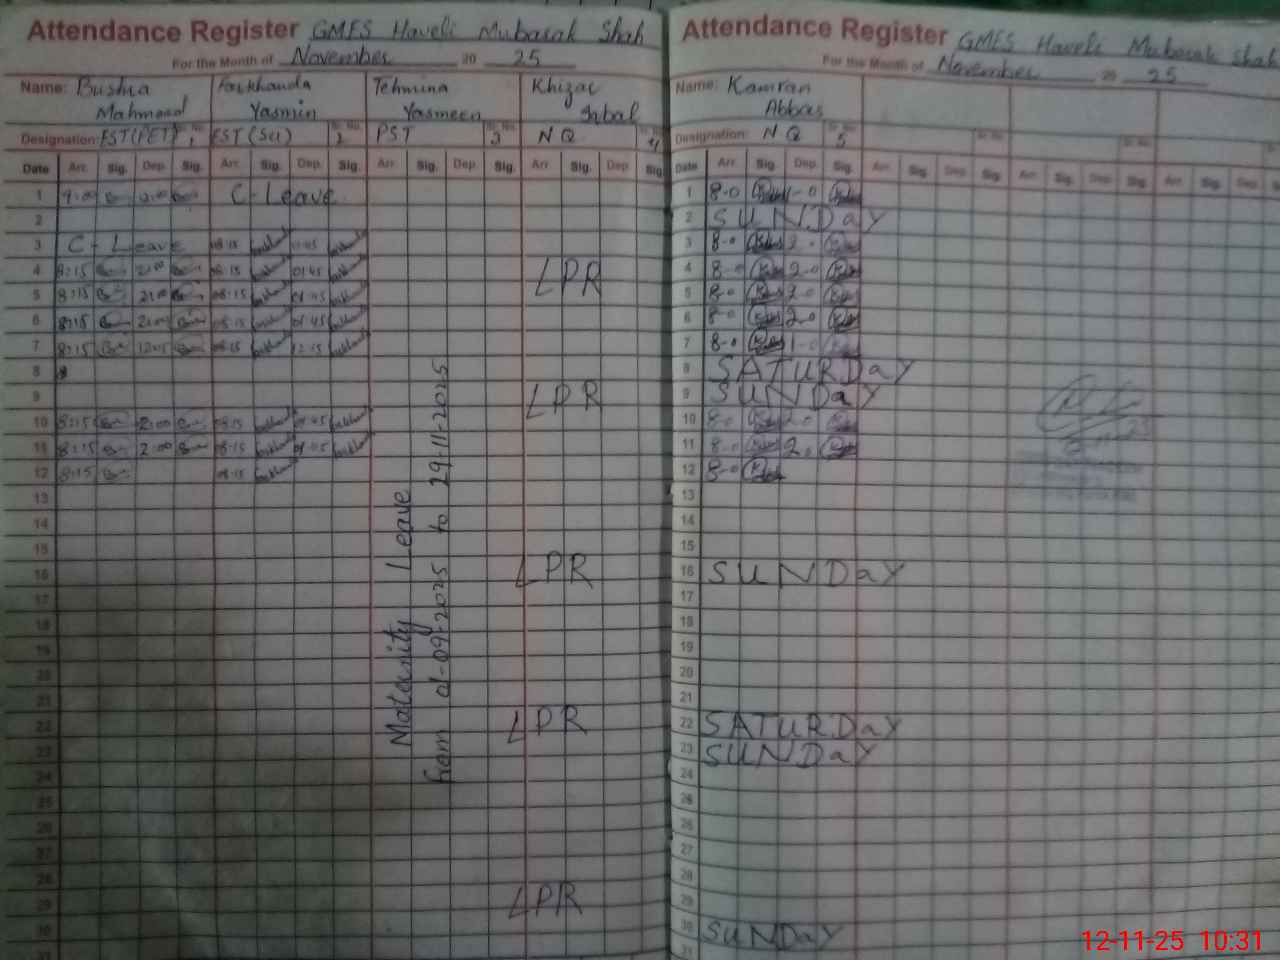 Attendance Register GMES Haveli Mubarak Shah
For the Month of November 20 25
Name: Bushra Mahmood Farkhanda Yasmin Tehmina Yasmeen Khizar Iqbal
Designation: EST(PET) Sr. No. 1 EST(Sci) Sr. No. 2 PST Sr. No. 3 NQ Sr. No. 4
Date Arr. Sig. Dep. Sig. Arr. Sig. Dep. Sig. Arr. Sig. Dep. Sig. Arr. Sig. Dep. Sig.
1 C-Leave
2
3 C-Leave 08:15
4 8:15 2:00 08:15 01:45 LPR
5 8:15 2:00 08:15 01:45
6 8:15 2:00 08:15 01:45
7 8:15 12:05 08:15 12:15
8
9 LPR
10 8:15 2:00 08:15 01:45
11 8:15 2:00 08:15 01:45
12 8:15 08:15
13
14
15
16 LPR
17
18
19
20
21
22 LPR
23
24
25
26
27
28
29 LPR
30
Maternity Leave
from 01-09-2025 to 29-11-2025
Attendance Register GMES Haveli Mubarak Shah
For the Month of November 20 25
Name: Kamran Abbas
Designation: NQ Sr. No. 5 Sr. No. Sr. No.
Date Arr. Sig. Dep. Sig. Arr. Sig. Dep. Sig. Arr. Sig. Dep. Sig. Arr. Sig. Dep. Sig.
1 8-0 1-0
2 SUNDaY
3 8-0 2-0
4 8-0 2-0
5 8-0 2-0
6 8-0 2-0
7 8-0 1-0
8 SATURDaY
9 SUNDaY
10 8-0 2-0
11 8-0 2-0
12 8-0
13
14
15
16 SUNDaY
17
18
19
20
21
22 SATURDaY
23 SUNDaY
24
25
26
27
28
29
30 SUNDaY
31
12-11-25 10:31